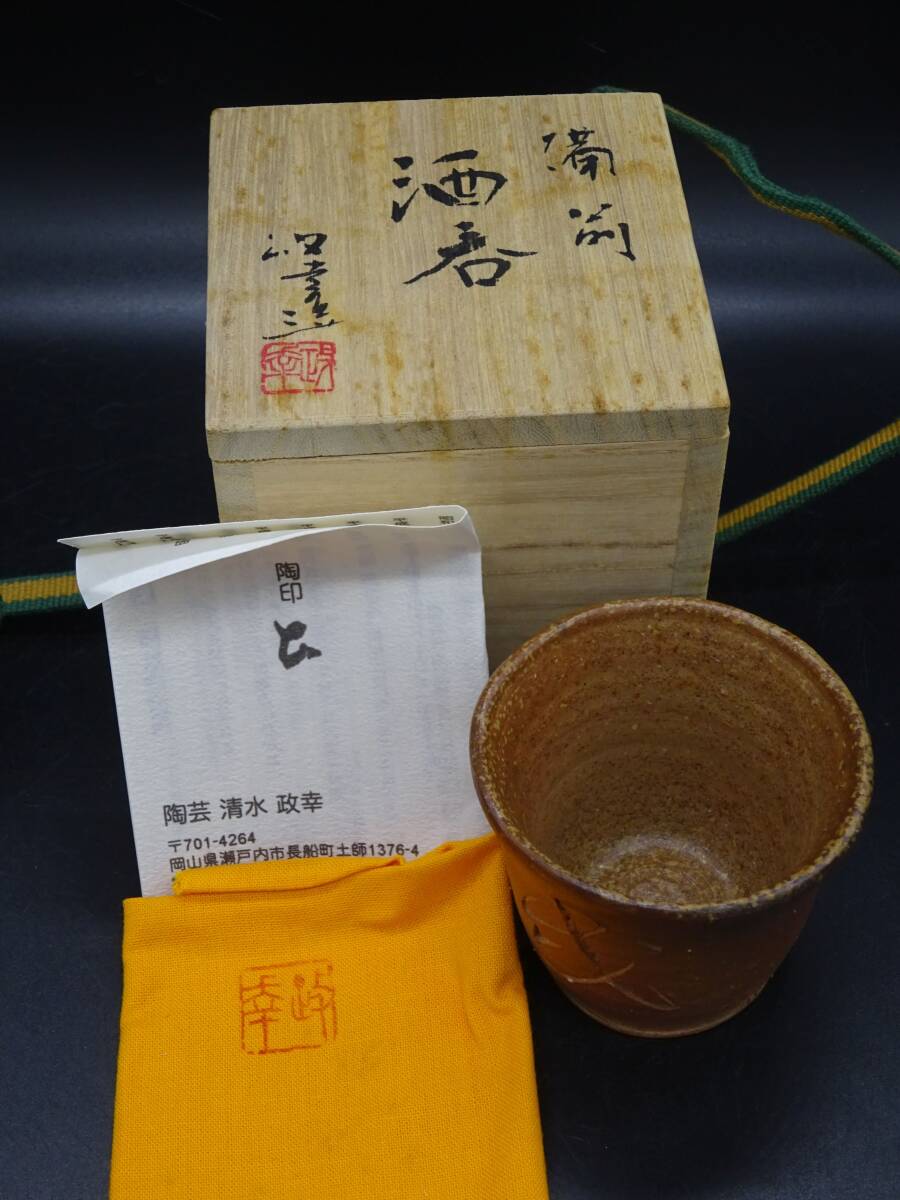 備前
酒呑
政幸造
政幸
陶印
陶芸 清水 政幸
〒701-4264
岡山県瀬戸内市長船町土師1376-4
政幸